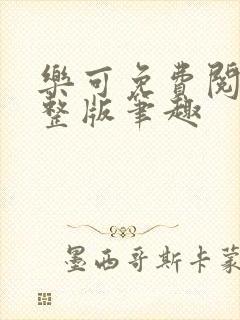 樂可免費閱
整版筆趣
墨西哥斯卡蒙